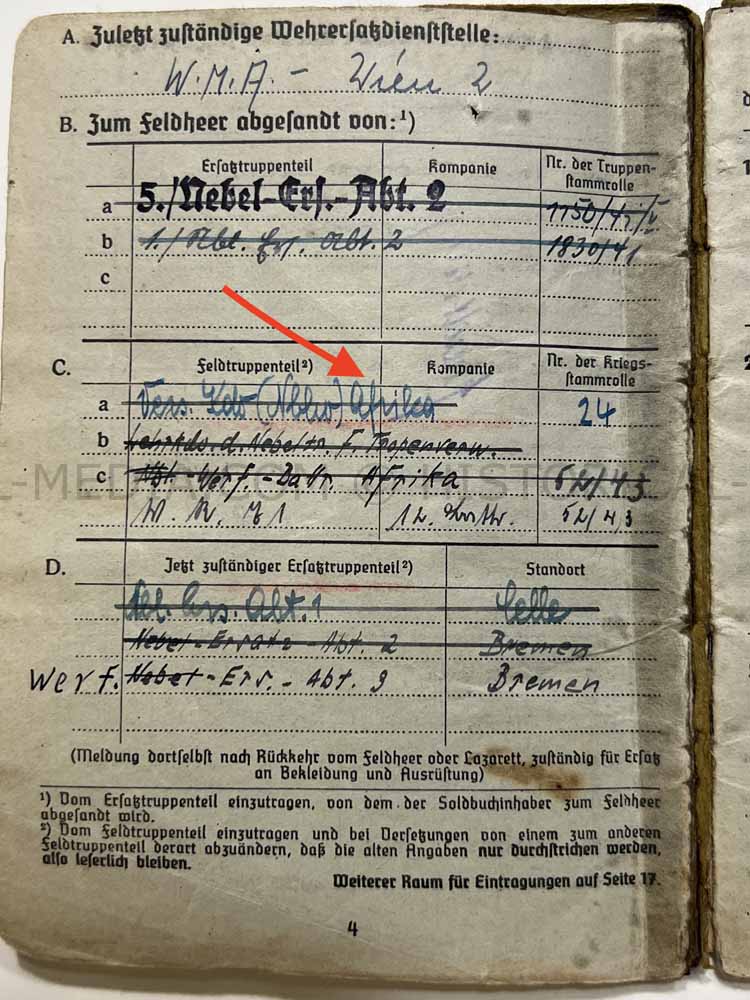 A. Zuletzt zuständige Wehrersatzdienststelle:
W.M.A. - Wien 2
B. Zum Feldheer abgesandt von:¹)
Ersatztruppenteil Kompanie Nr. der Truppenstammrolle
a 5./Nebel-Ers.-Abt. 2
b 1./ Ers. Abt. 2 1830/41
c
C. Feldtruppenteil²) Kompanie Nr. der Kriegsstammrolle
a Kdo (Nblw) Afrika 24
b Lehrkdo. d. Nebeltr. f. Tropenverw.
c Werf. Afrika 52/43
W. R. 71 12. 52/43
D. Jetzt zuständiger Ersatztruppenteil²) Standort
Ers. Abt. 1 Celle
Nebel-Ersatz-Abt. 2 Bremen
Werf. Nebel-Ers.-Abt. 3 Bremen
(Meldung dortselbst nach Rückkehr vom Feldheer oder Lazarett, zuständig für Ersatz
an Bekleidung und Ausrüstung)
¹) Vom Ersatztruppenteil einzutragen, von dem der Soldbuchinhaber zum Feldheer
abgesandt wird.
²) Vom Feldtruppenteil einzutragen und bei Versetzungen von einem zum anderen
Feldtruppenteil derart abzuändern, daß die alten Angaben nur durchstrichen werden,
also leserlich bleiben.
Weiterer Raum für Eintragungen auf Seite 17.
4